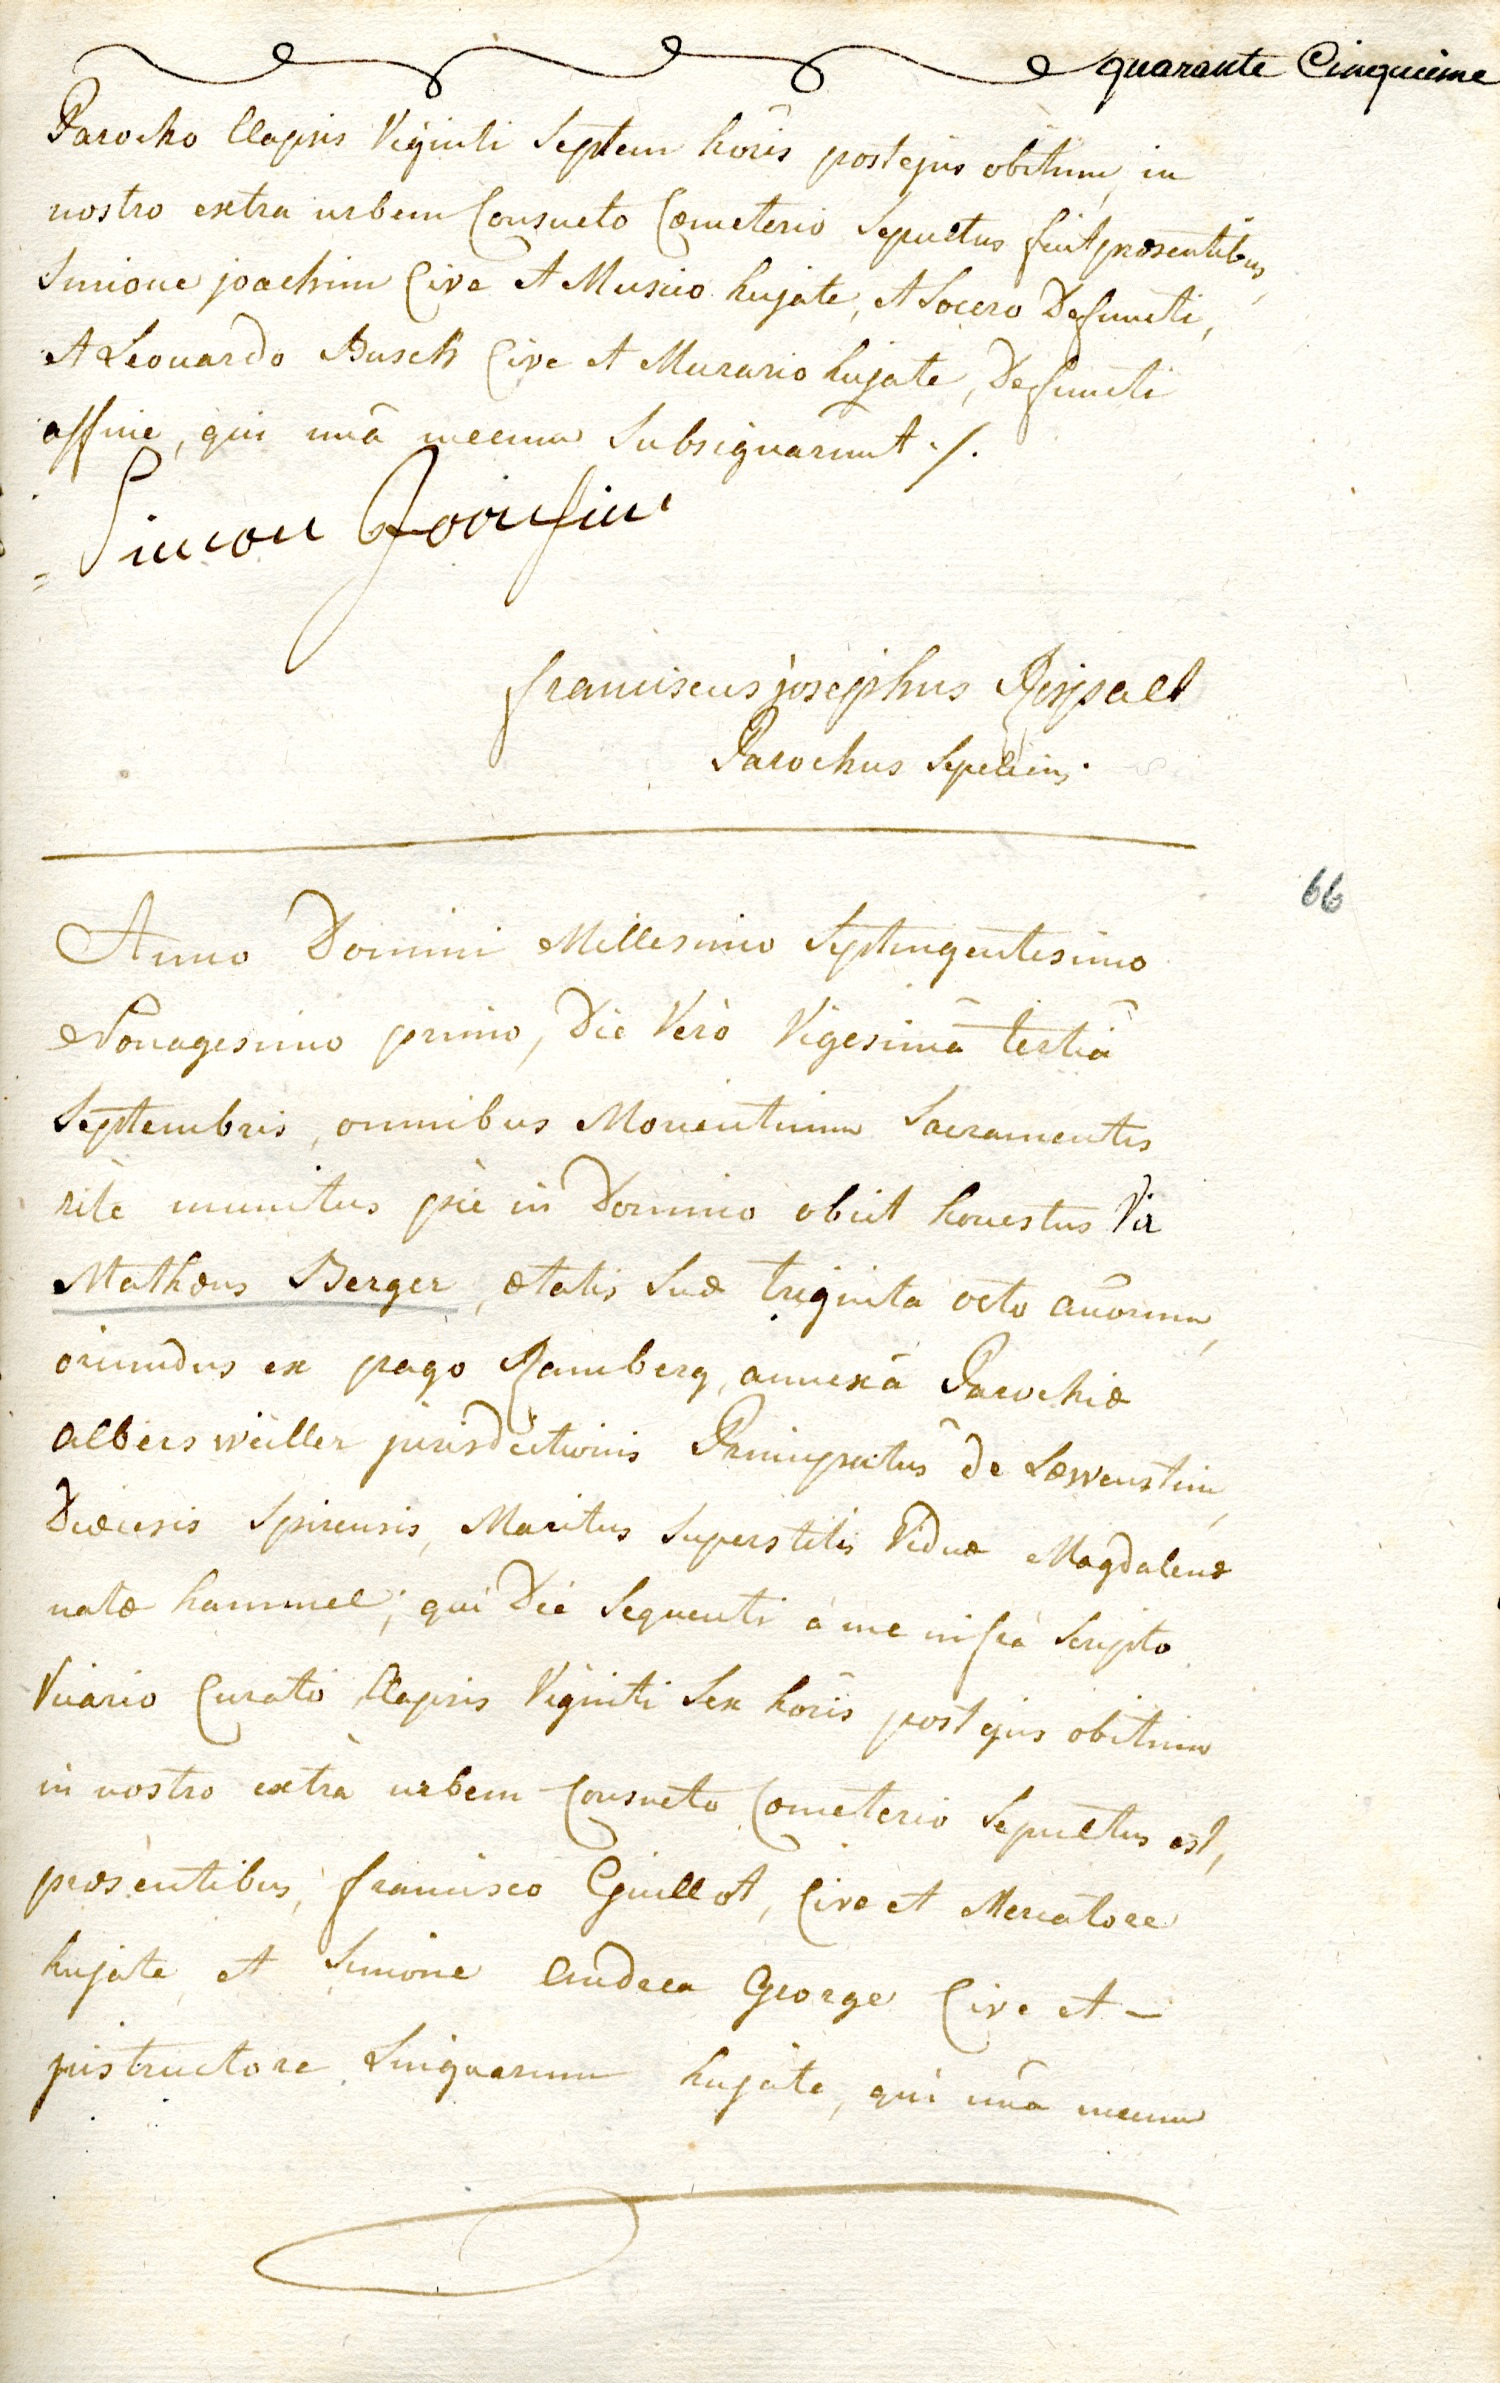 quarante Cinquieme
Parocho Elapsis Viginti Septem horis post ejus obitum, in
nostro extra urbem Consueto Cœmeterio Sepultus fuit præsentibus,
Simione joachim Cive et Musico hujate, et Socero Defuncti,
et Leonardo Busch Cive et Murario hujate, Defuncti
affine, qui unâ mecum Subsignarunt ./.
Simon Joachim
franciscus josephus Respalt
Parochus Sepeliens.
66
Anno Domini Millesimo Septingentesimo
Nonagesimo primo, Die Verò Vigesimâ tertiâ
Septembris, omnibus Morientium Sacramentis
ritè munitus piè in Domino obiit honestus Vir
Mathæus Berger, ætatis Suæ triginta octo añorum,
oriundus ex pago Ramberg, annexâ Parochiæ
Albersweiller jurisdictionis Principatus de Lœwenstein,
Diœcesis Spirensis, Maritus Superstitis Viduæ Magdalenæ
natæ hammel; qui Die Sequenti à me infrà Scripto
Vicario Curato Elapsis Viginti Sex horis post ejus obitum
in nostro extrà urbem Consueto Cœmeterio Sepultus est,
præsentibus, francisco Guillot, Cive et Mercatore
hujate, et Simone Andrea George Cive et –
pistructore Linguarum hujate, qui unâ mecum